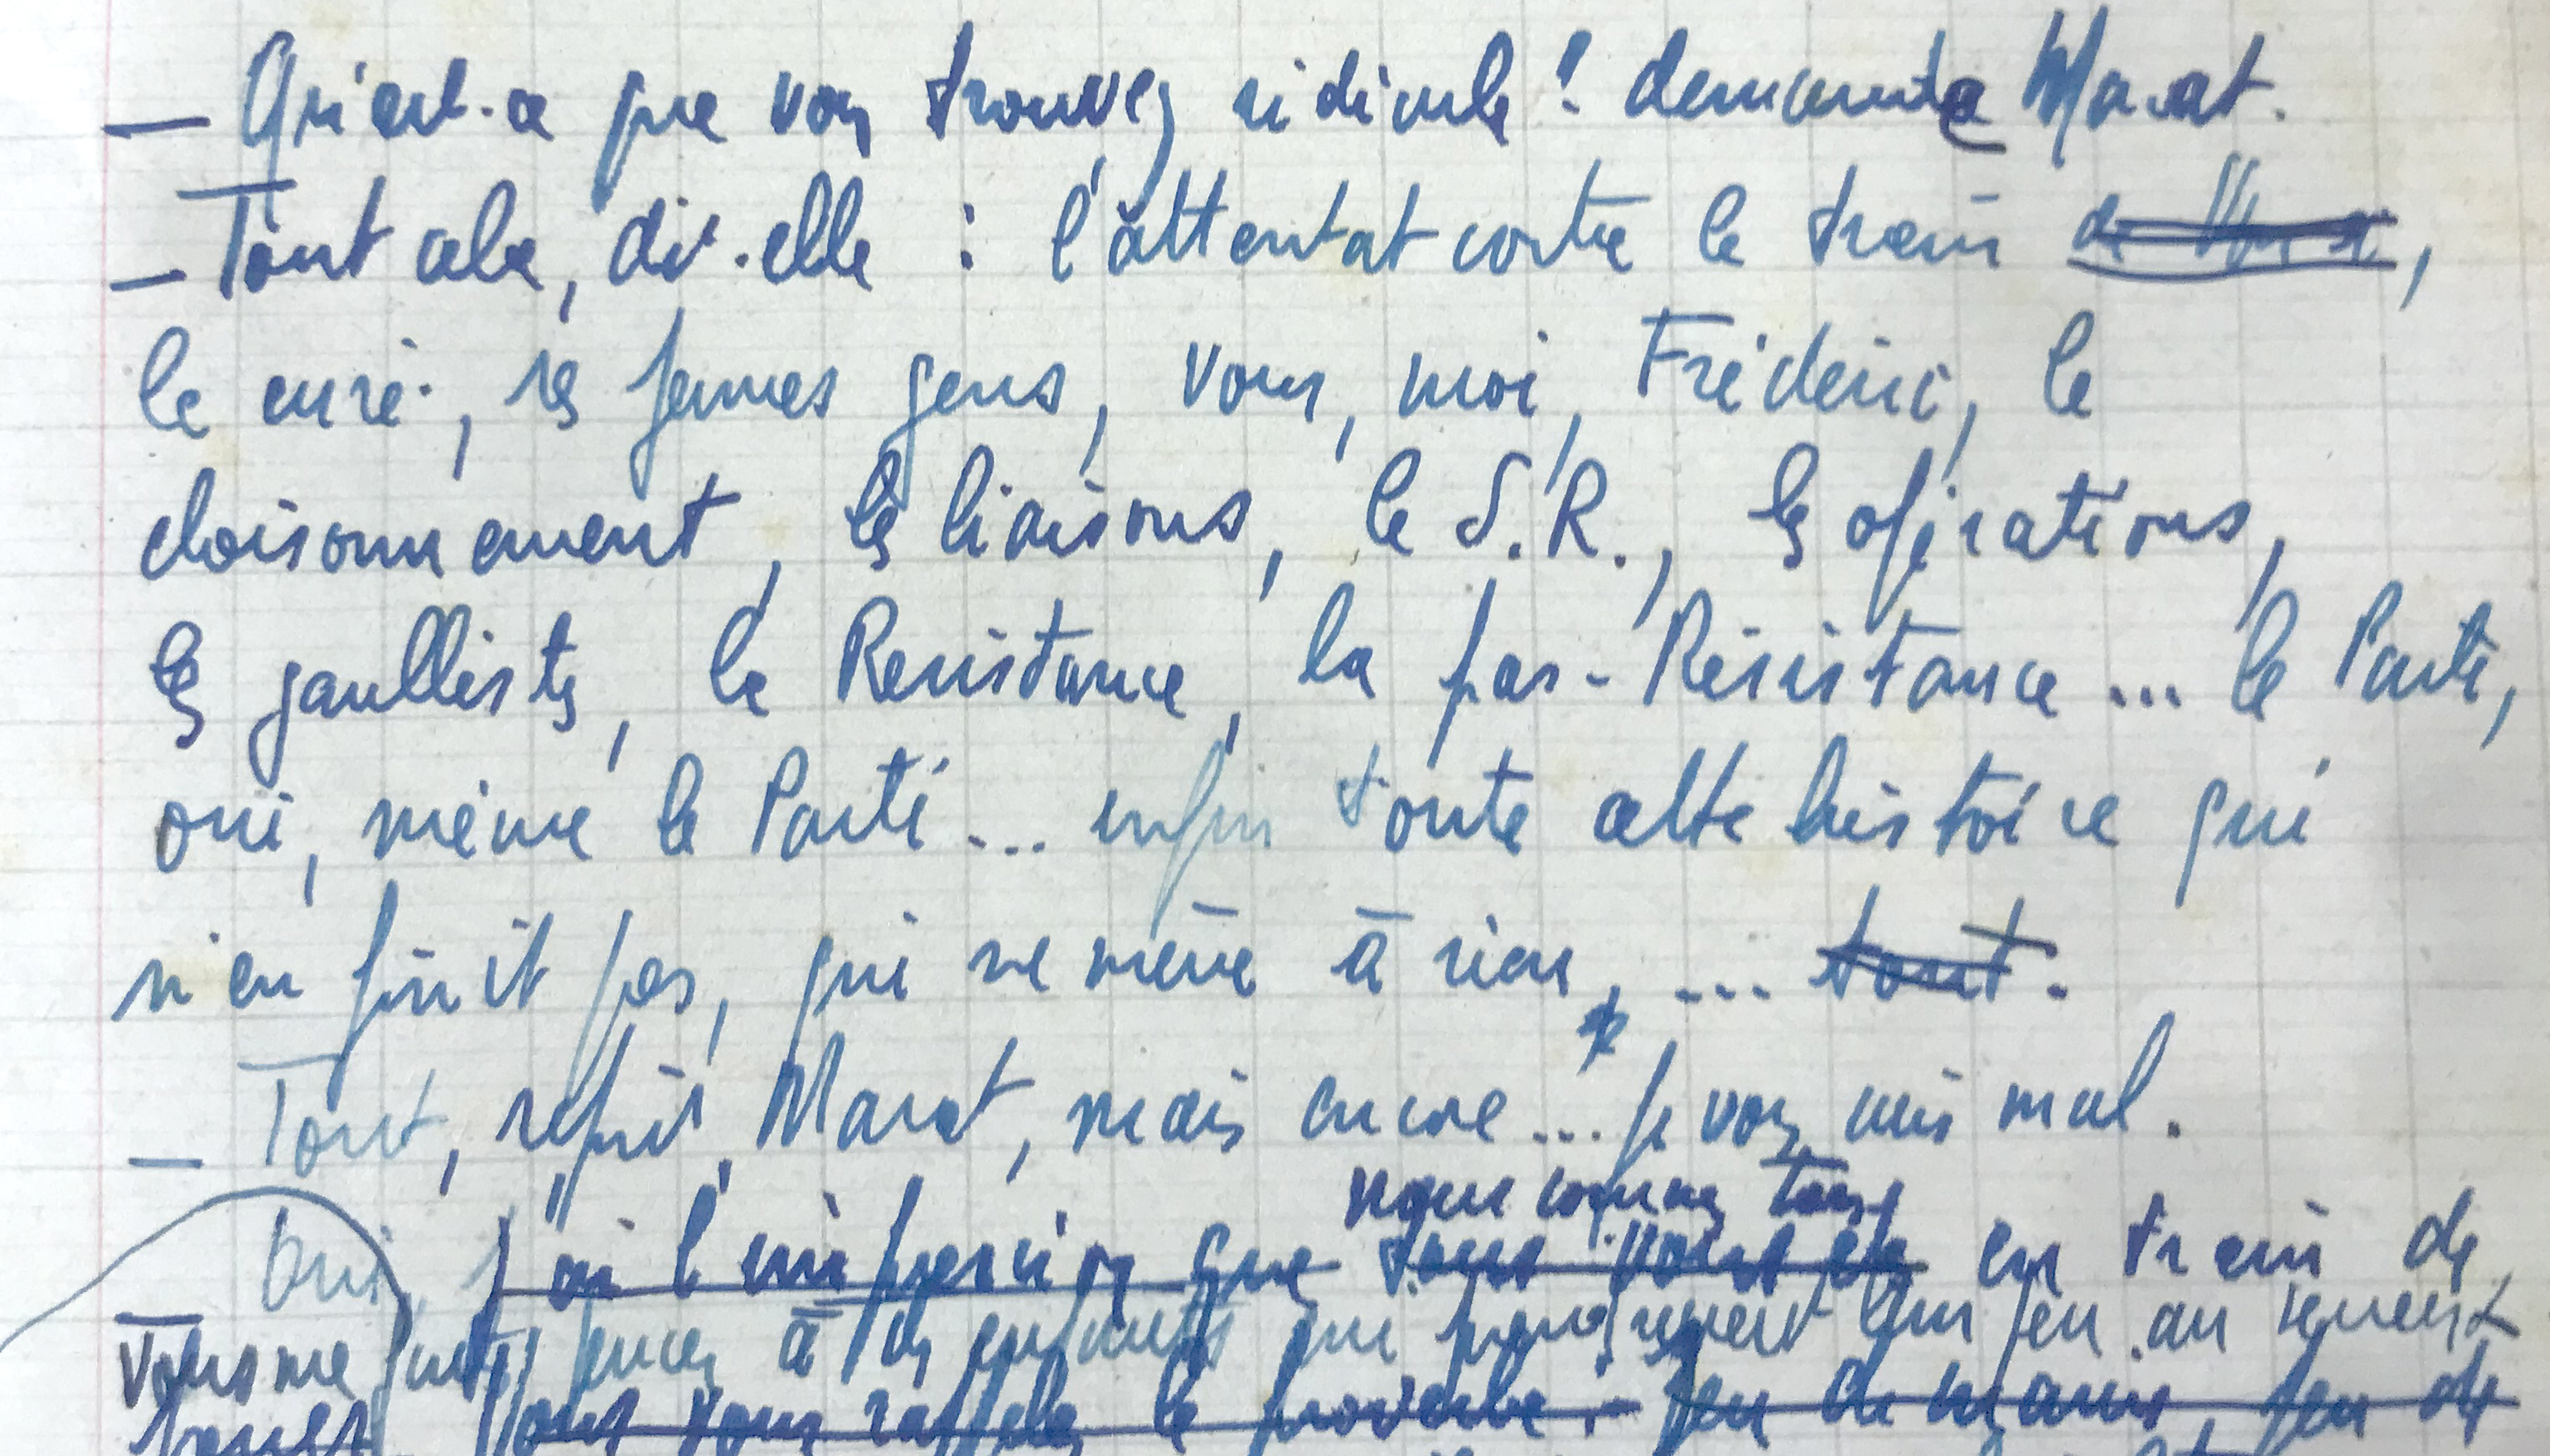 — Qu'est-ce que vous trouvez ridicule ? demanda Marat.
— Tout cela, dit-elle : l'attentat contre le train de,
le curé, ses jeunes gens, vous, moi, Frédéric, le
cloisonnement, les liaisons, le S.R., les opérations,
les gaullistes, la Resistance, la pas-Résistance ... le Parti,
oui, même le Parti ... enfin toute cette histoire qui
n'en finit pas, qui ne mène à rien, ... tout.
— Tout, reprit Marat, mais encore ... Je vous suis mal.
nous sommes tous
Oui, j'ai l'impression que tous vous êtes en train de
Vous me faites penser à des enfants qui prendraient leur jeu au serieux
Vous vous rappelez le proverbe : jeu de mains, jeu de